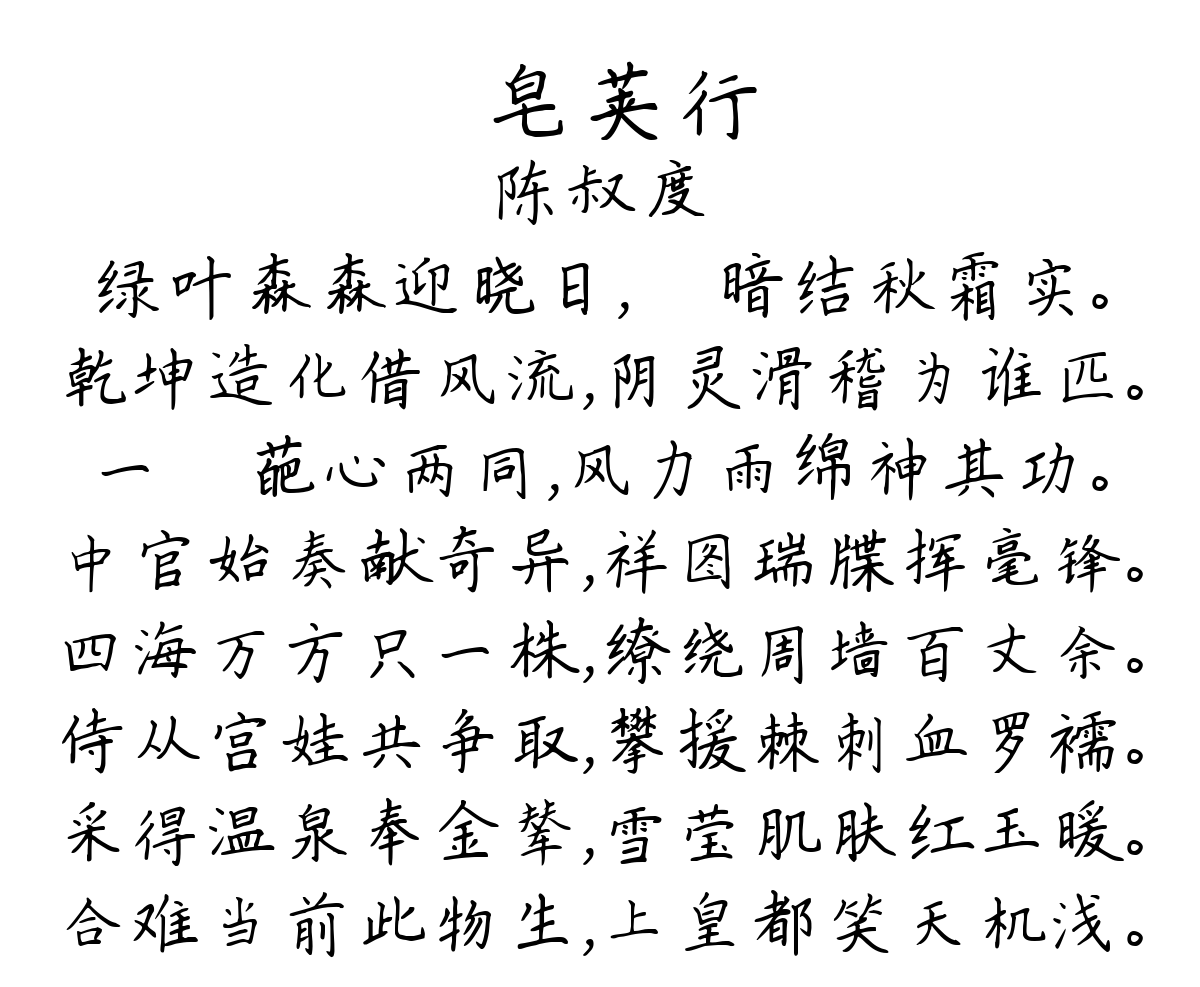 皂荚行
陈叔度
绿叶森森迎晓日， 暗结秋霜实。
乾坤造化借风流,阴灵滑稽为谁匹。
一 葩心两同,风力雨绵神其功。
中官始奏献奇异,祥图瑞牒挥毫锋。
四海万方只一株,缭绕周墙百丈余。
侍从宫娃共争取,攀援棘刺血罗襦。
采得温泉奉金辇,雪莹肌肤红玉暖。
合难当前此物生,上皇都笑天机浅。